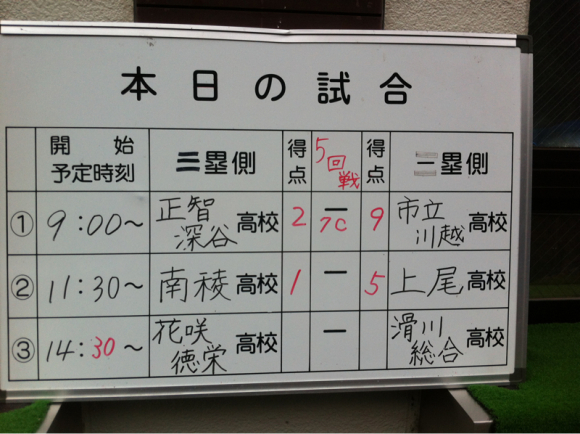 本日の試合
開始 予定時刻 三塁側 得点 5回戦 得点 一塁側
① 9:00〜 正智深谷高校 2 ー 7C 9 市立川越高校
② 11:30〜 南稜高校 1 ー 5 上尾高校
③ 14:30〜 花咲徳栄高校 ー 滑川総合高校